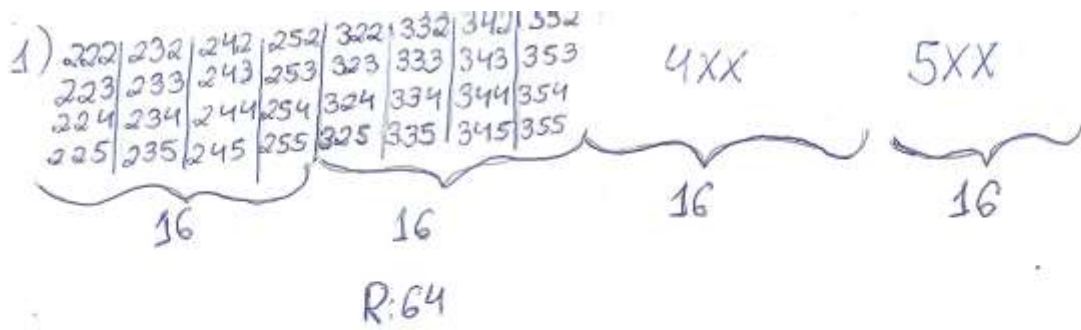 1) 222|232|242|252|322|332|342|352
223|233|243|253|323|333|343|353 4XX 5XX
224|234|244|254|324|334|344|354
225|235|245|255|325|335|345|355
16 16 16 16
R:64